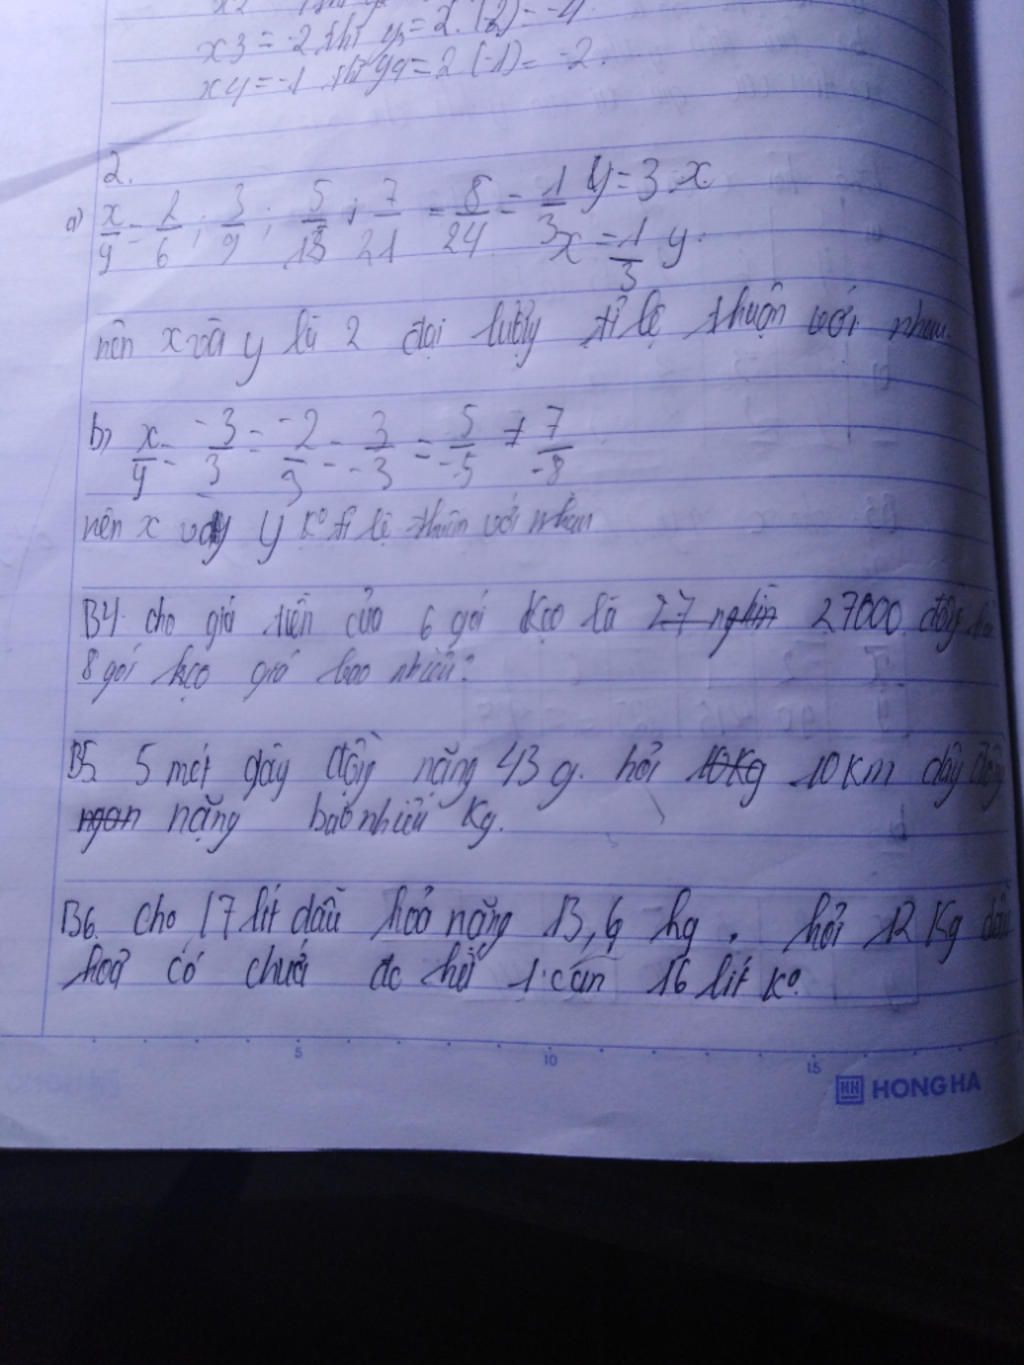 x3 = -2 thì y3 = 2.(-2) = -4.
x4 = -1 thì y4 = 2 (-1) = -2.
2.
a) x/y = 2/6 ; 3/9 ; 5/15 ; 7/21 = 8/24 = 1/3 y = 3.x
x = 1/3 y.
nên x và y là 2 đại lượng tỉ lệ thuận với nhau.
b) x/y = -3/3 = -2/3 = 3/-3 = 5/-5 ≠ 7/-8
nên x và y k° tỉ lệ thuận với nhau
B4. cho giá tiền của 6 gói kẹo là 27 nghìn 27000 đồng hỏi
8 gói kẹo giá bao nhiêu?
B5. 5 mét dây đồng nặng 43 g. hỏi 10kg 10km dây đồng
ngan nặng bao nhiêu kg.
B6. cho 17 lít dầu hoả nặng 13,6 kg, hỏi 12 kg dầu
hoả có chứa đc hết 1 can 16 lít k°.
5 10 15
HH HONG HA